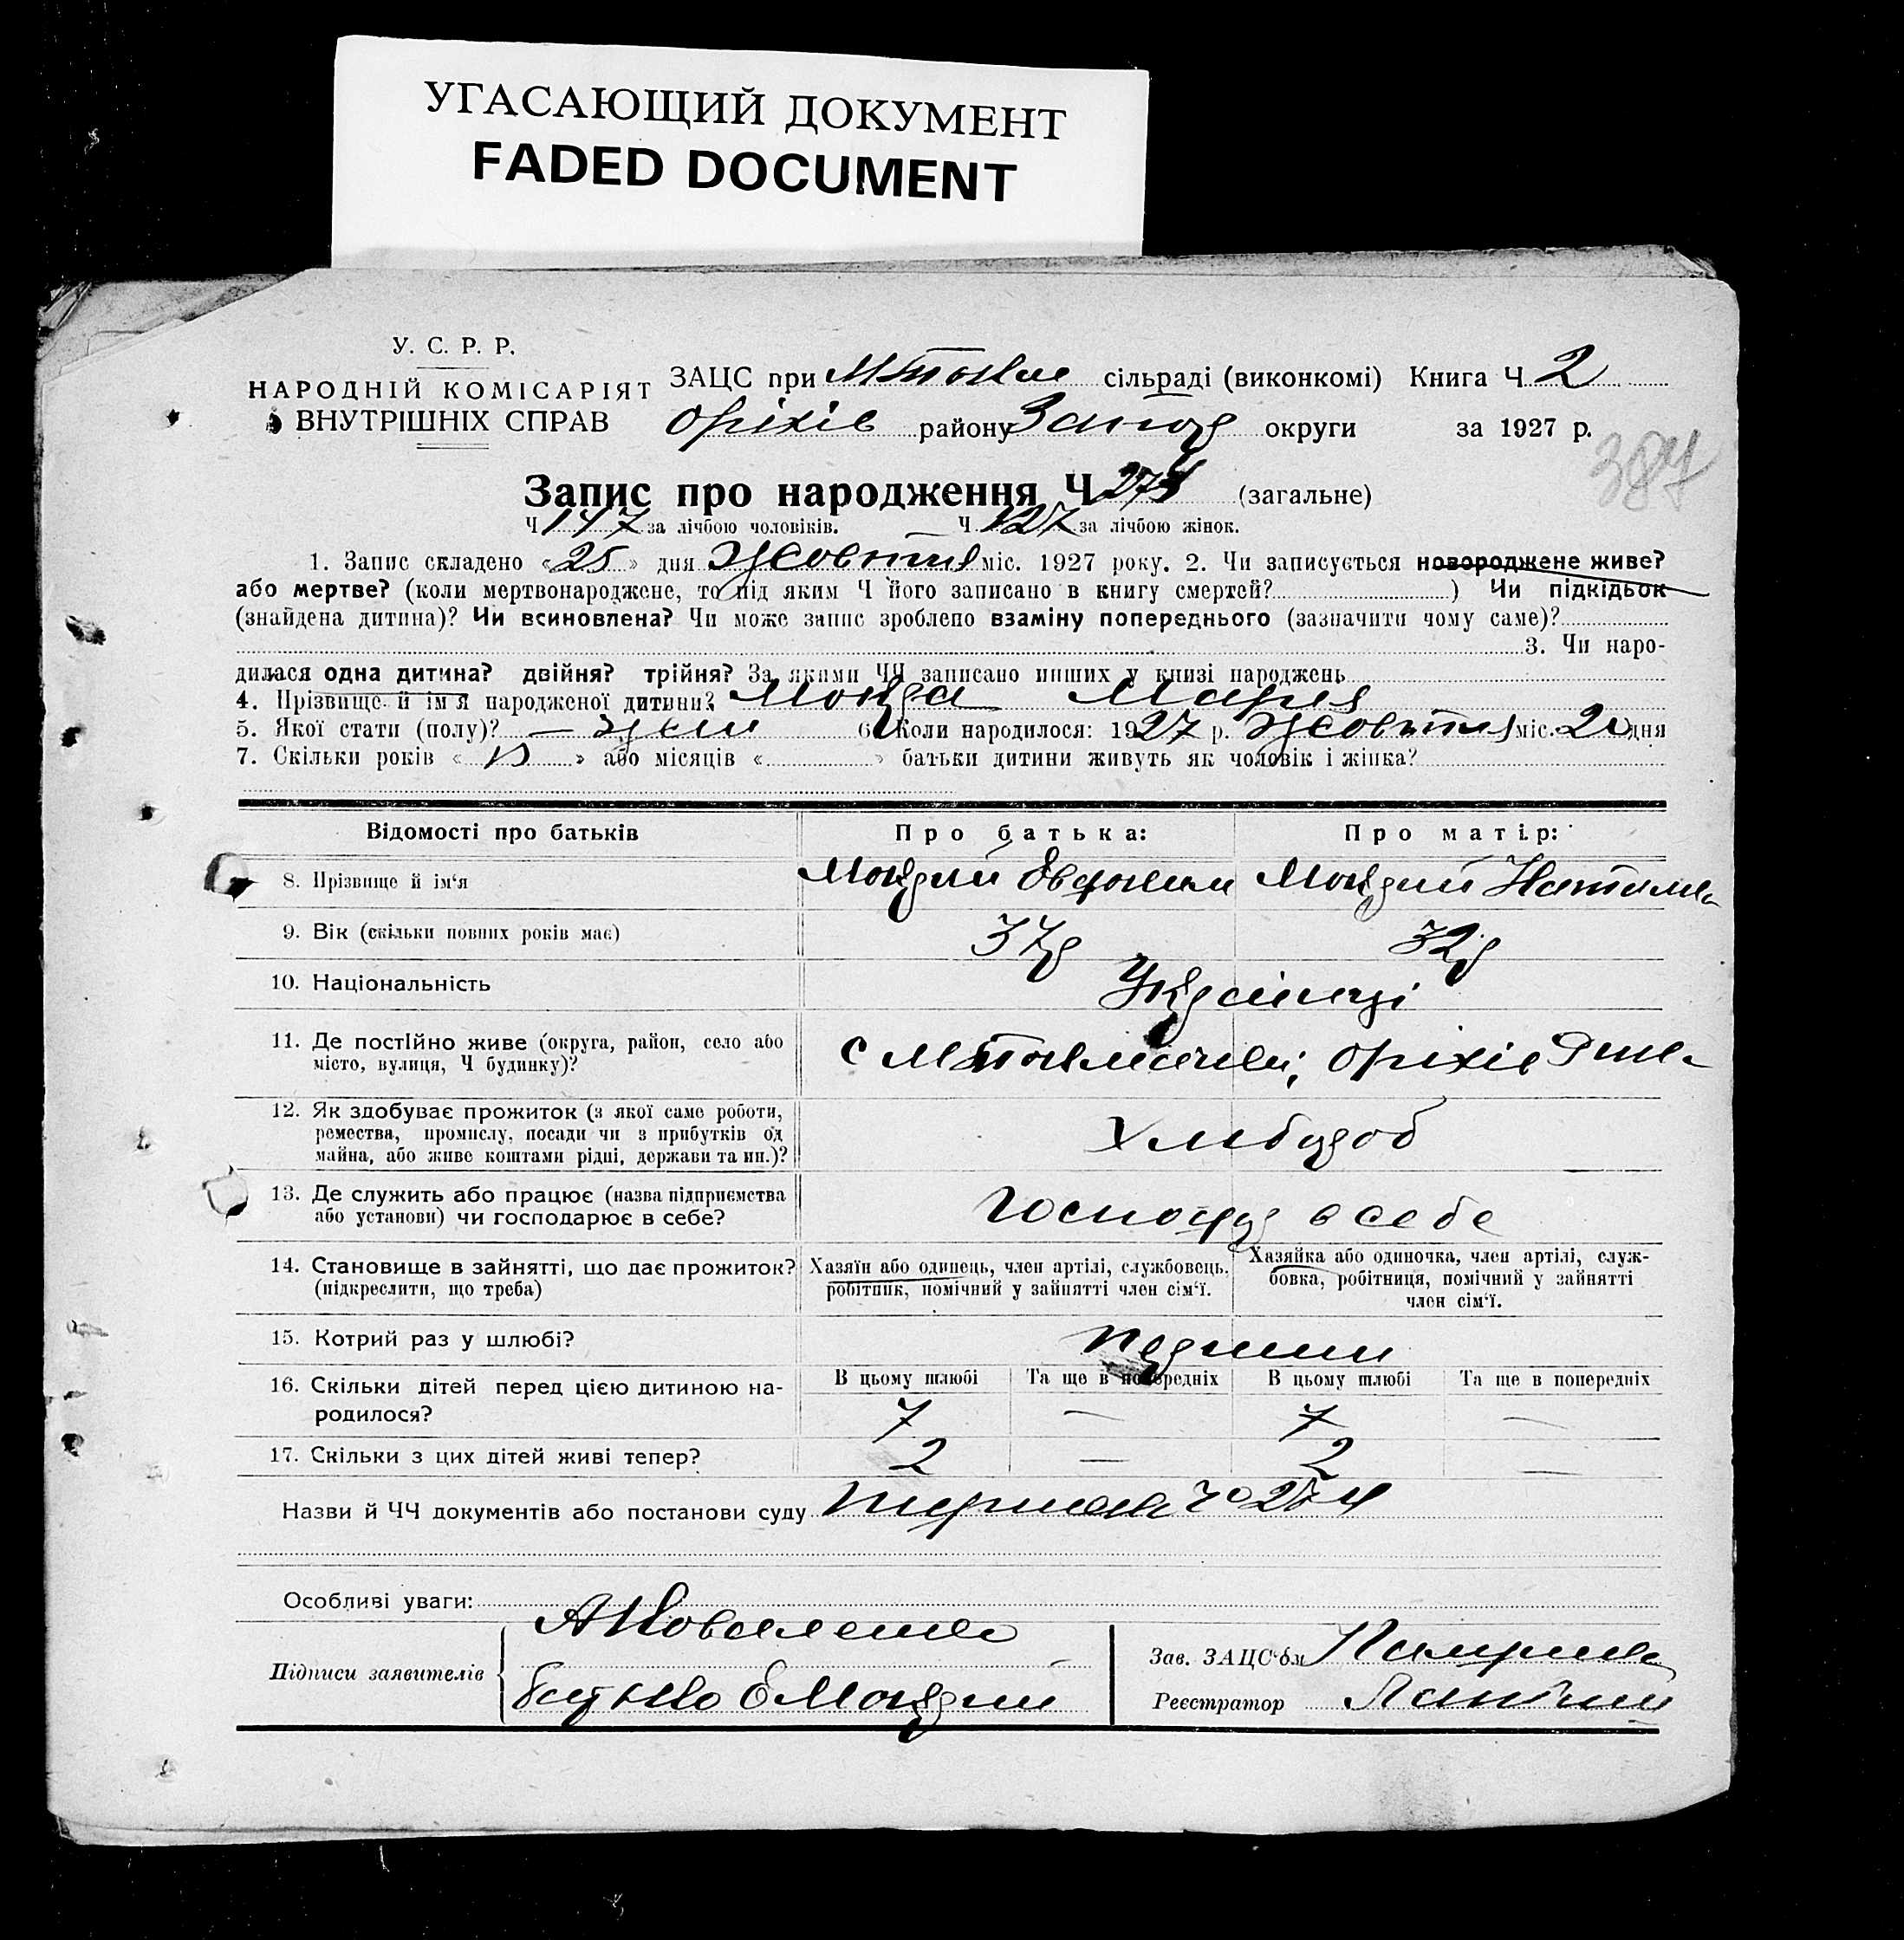 УГАСАЮЩИЙ ДОКУМЕНТ
FADED DOCUMENT
У. С. Р. Р.
НАРОДНІЙ КОМІСАРІЯТ
ВНУТРІШНІХ СПРАВ
ЗАЦС при М Токм сільраді (виконкомі) Книга Ч 2
Оріхів району Запор округи за 1927 р.
387
Запис про народження Ч 274 (загальне)
Ч 147 за лічбою чоловіків. Ч 127 за лічбою жінок.
1. Запис складено « 25 » дня Жовтня міс. 1927 року. 2. Чи записується новороджене живе?
або мертве? (коли мертвонароджене, то під яким Ч його записано в книгу смертей? ) Чи підкідьок
(знайдена дитина)? Чи всиновлена? Чи може запис зроблено взаміну попереднього (зазначити чому саме)?
3. Чи наро-
дилася одна дитина? двійня? трійня? За якими ЧЧ записано инших у книзі народжень
4. Прізвище й ім'я народженої дитини? Мария
5. Якої стати (полу)? — жін 6. Коли народилося: 1927 р. Жовтня міс. 20 дня
7. Скільки років « 13 » або місяців « » батьки дитини живуть як чоловік і жінка?
Відомості про батьків
Про батька:
Про матір:
8. Прізвище й ім'я
9. Вік (скільки повних років має) 37р 32р
10. Національність Українці
11. Де постійно живе (округа, район, село або
місто, вулиця, Ч будинку)?
с М Оріхів
12. Як здобуває прожиток (з якої саме роботи,
ремества, промислу, посади чи з прибутків од
майна, або живе коштами рідні, держави та ин.)?
Хлибороб
13. Де служить або працює (назва підприємства
або установи) чи господарює в себе?
Господар в себе
14. Становище в зайнятті, що дає прожиток?
(підкреслити, що треба)
Хазяїн або одинець, член артілі, службовець,
робітник, помічний у зайнятті член сім'ї.
Хазяйка або одиночка, член артілі, служ-
бовка, робітниця, помічний у зайнятті
член сім'ї.
15. Котрий раз у шлюбі? перший
16. Скільки дітей перед цією дитиною на-
родилося?
В цьому шлюбі Та ще в попередніх В цьому шлюбі Та ще в попередніх
7 — 7 —
17. Скільки з цих дітей живі тепер? 2 — 2 —
Назви й ЧЧ документів або постанови суду 274
Особливі уваги:
Підписи заявителів
А Коваленко
батько
Зав. ЗАЦС'ом
Реєстратор